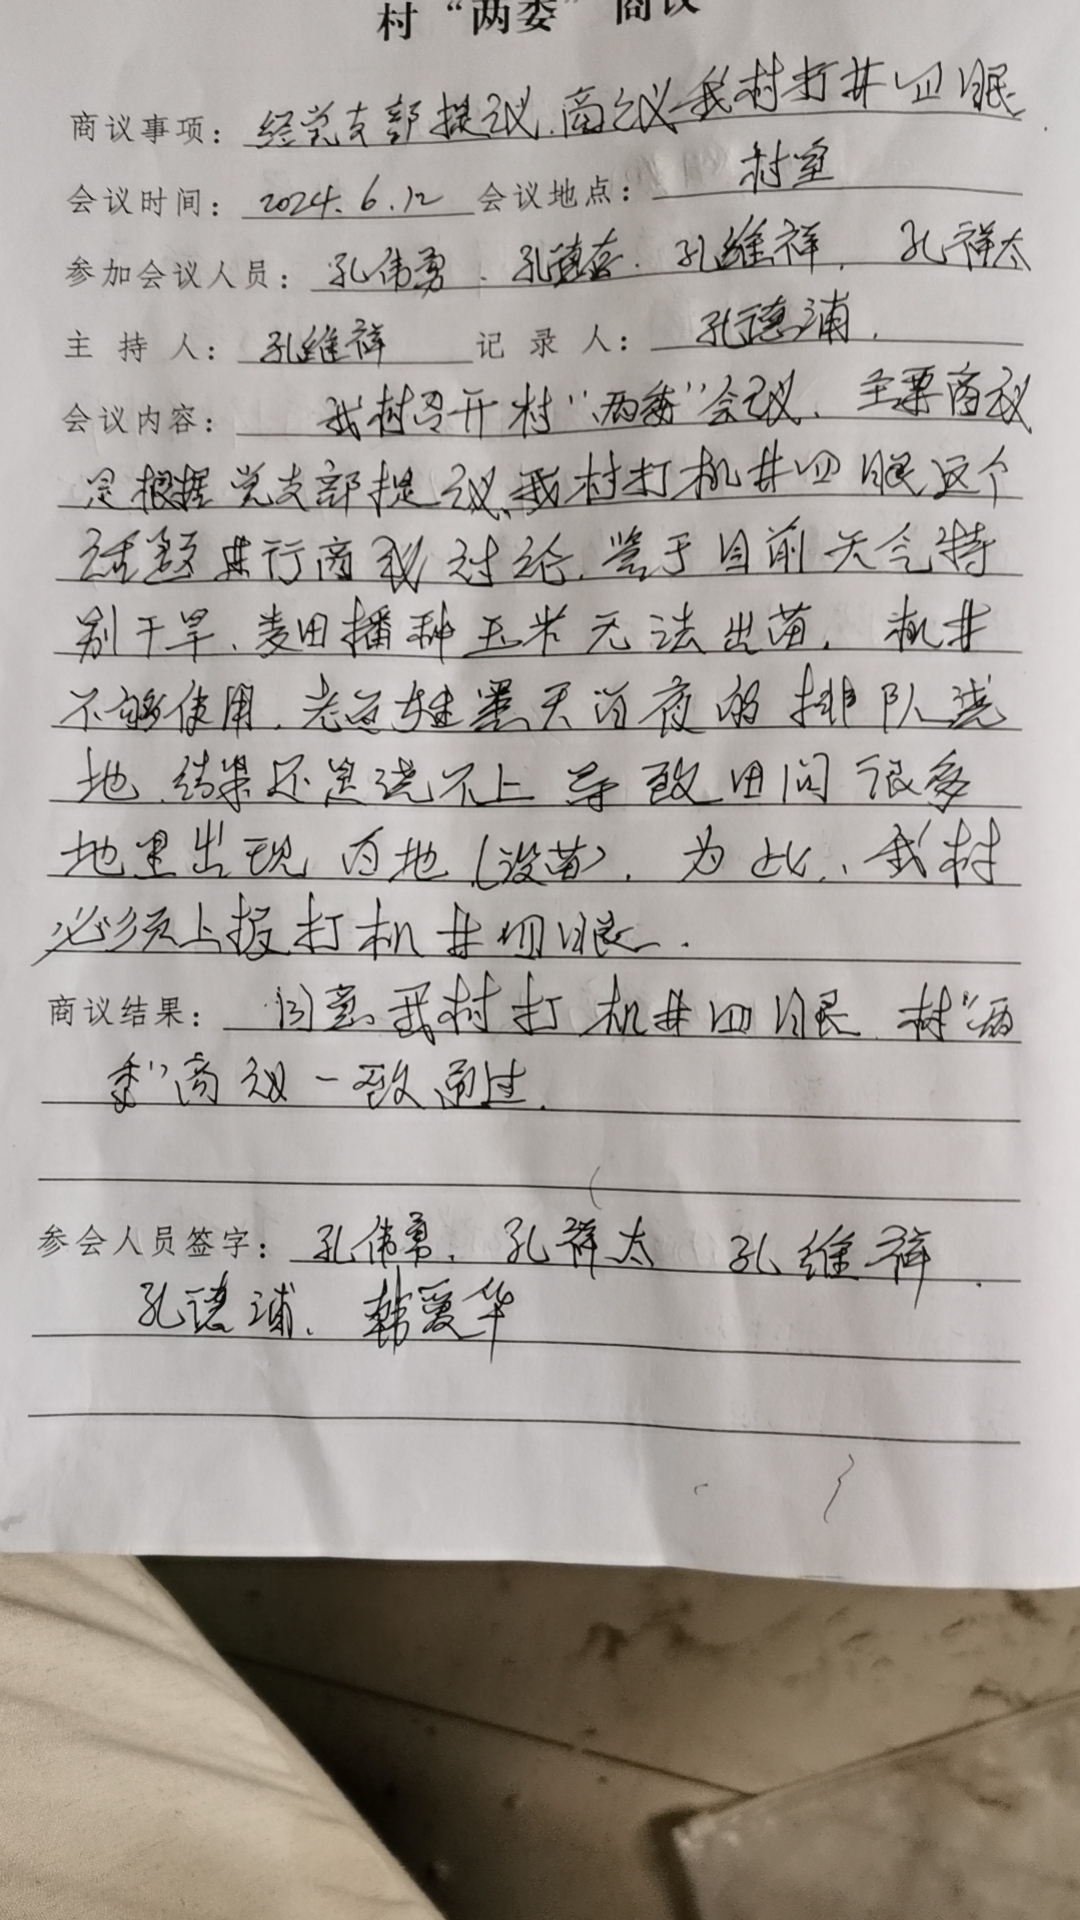 村“两委”商议
商议事项：经党支部提议.商议我村打井四眼
会议时间：2024.6.12 会议地点：村室
参加会议人员：孔伟勇、孔德存.孔维祥.孔祥太
主持人：孔维祥 记录人：孔德浦.
会议内容：我村召开村“两委”会议.主要商议
是根据党支部提议,我村打机井四眼这个
话题进行商议讨论.鉴于目前天气特
别干旱、麦田播种玉米无法出苗.机井
不够使用.老百姓黑天白夜的排队浇
地.结果还是浇不上导致田间很多
地里出现白地(没苗).为此、我村
必须上报打机井四眼.
商议结果：同意我村打机井四眼.村“两
委”商议一致通过.
参会人员签字：孔伟勇.孔祥太 孔维祥.
孔德浦.韩爱华